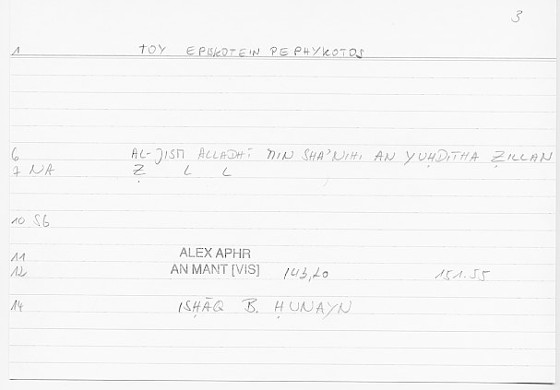 3
1 TOY EPISKOTEIN PEPHYKOTOS
6 AL-JISM ALLADHĪ MIN SHA'NIHI AN YUḤDITHA ẒILLAN
7 NA Ẓ L L
10 SG
11 ALEX APHR
12 AN MANT [VIS] 143,20 151.55
14 ISḤĀQ B. ḤUNAYN